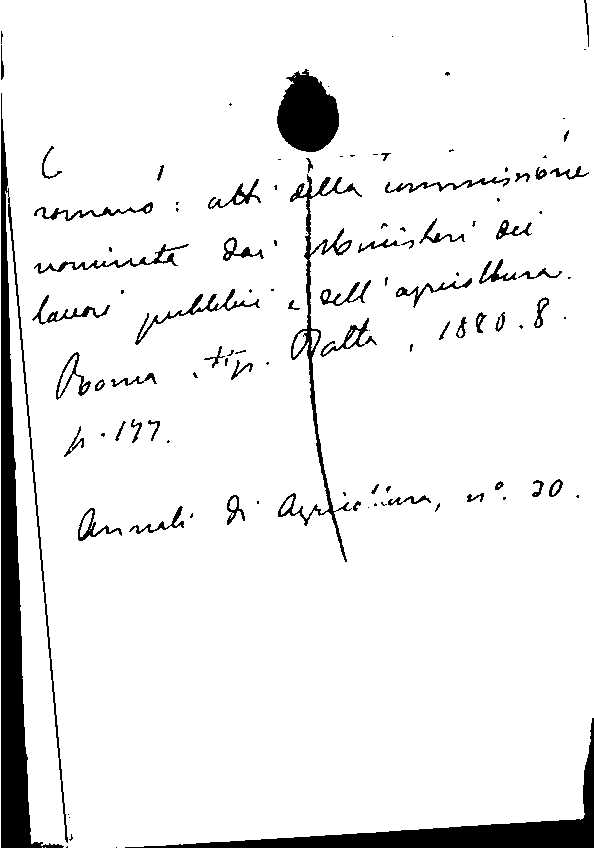 romano: atti della commissione
nominata dai Ministeri dei
lavori pubblici e dell'agricoltura.
Roma, tip. Balta, 1880. 8.
p. 177.
Annali di Agricoltura, nº. 20.